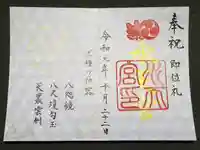 奉祝 即位礼
令和元年十月二十二日
三種の神器
八咫鏡
八尺瓊勾玉
天叢雲剣